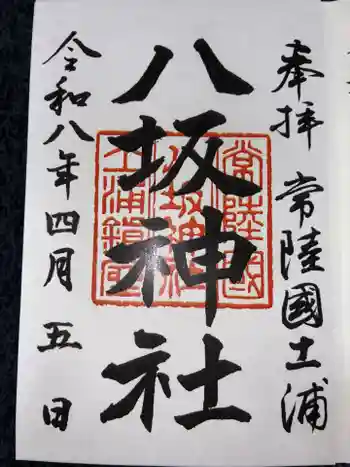 奉拝 常陸國土浦
八坂神社
令和八年四月五日
常陸國
八坂神社
土浦鎮座